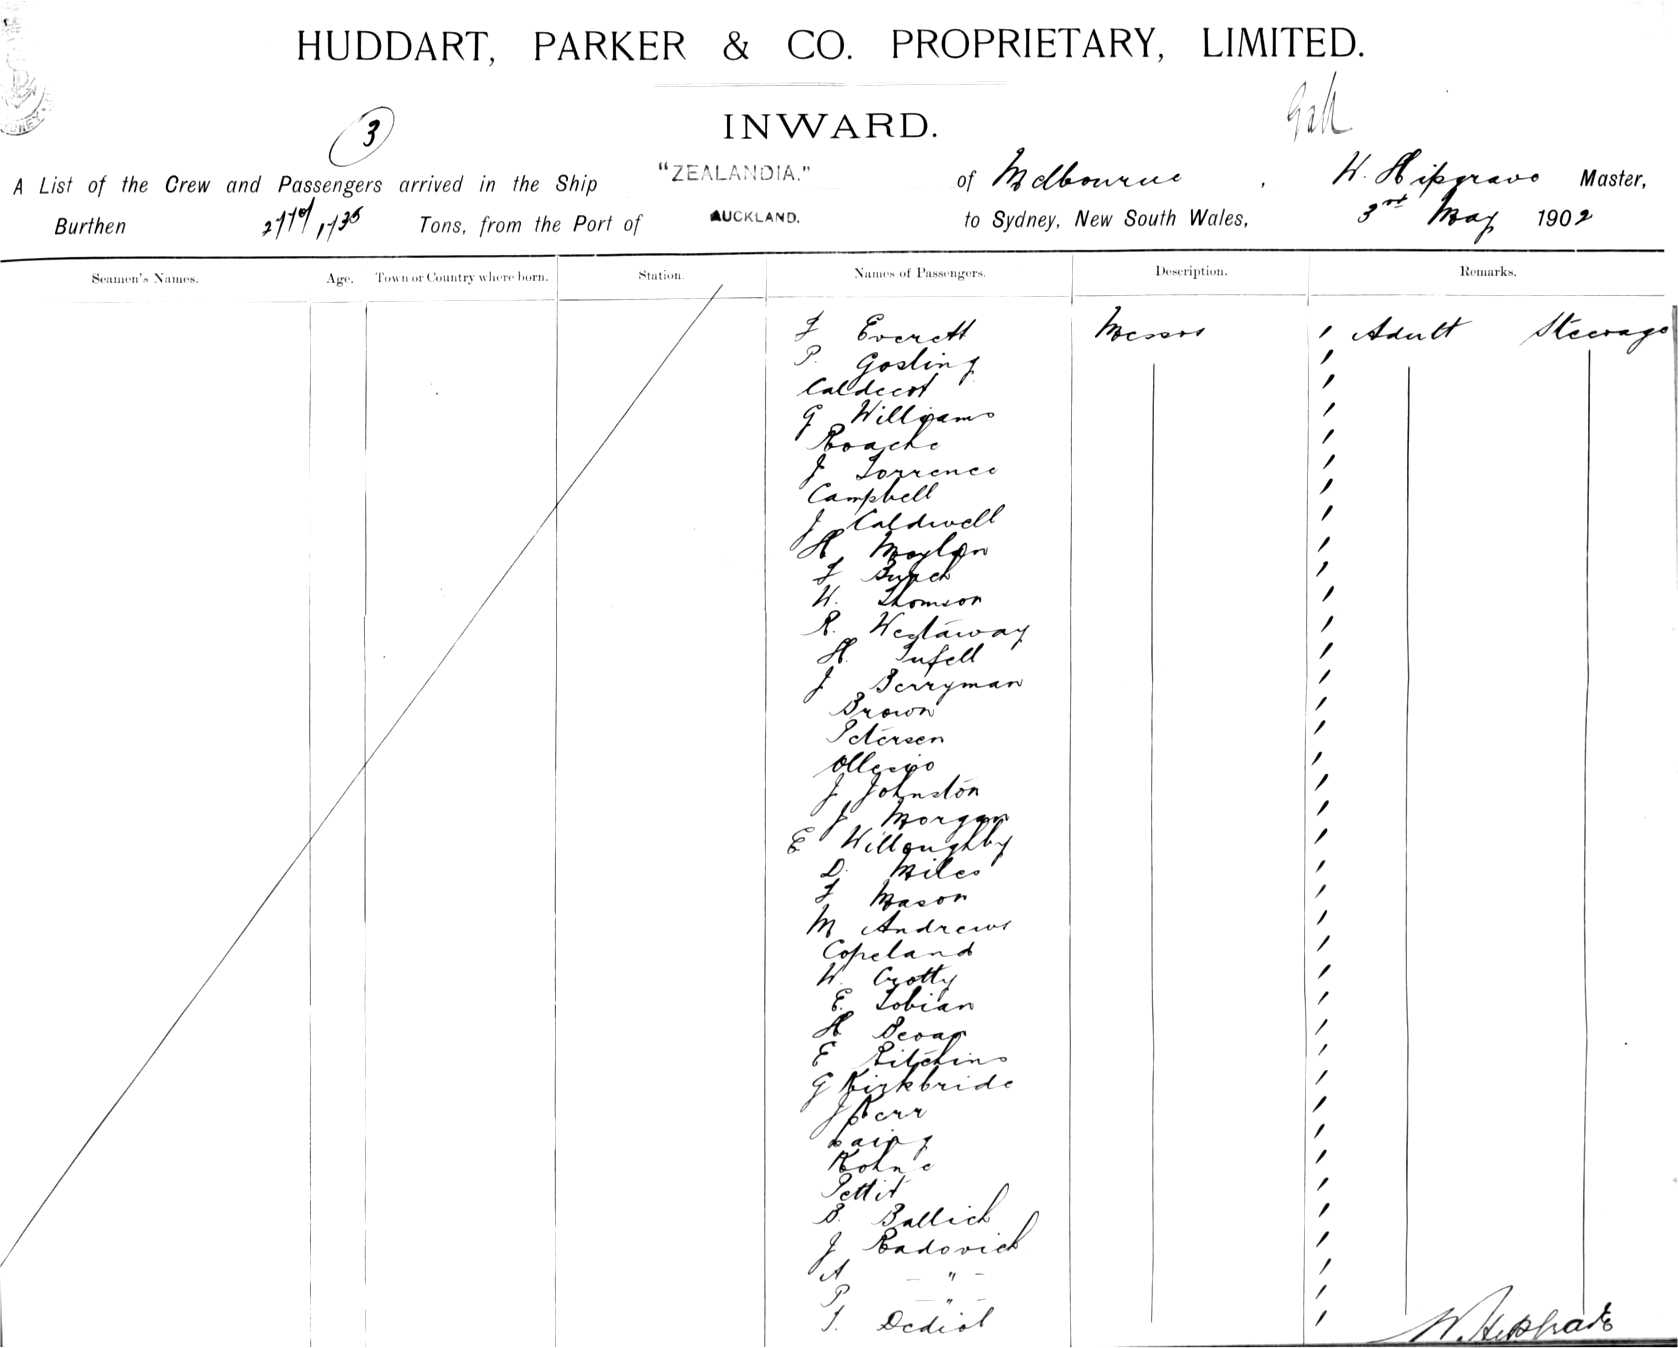 HUDDART, PARKER & CO. PROPRIETARY, LIMITED.
INWARD.
3
A List of the Crew and Passengers arrived in the Ship "ZEALANDIA." of Melbourne, W. Hipgrave Master,
Burthen Tons, from the Port of AUCKLAND. to Sydney, New South Wales, 3rd May 1902
Seamen's Names. Age. Town or Country where born. Station. Names of Passengers. Description. Remarks.
F Everett Messrs 1 Adult Steerage
P. Gosling 1
Caldecot 1
G Williams 1
Roache 1
J Torrence 1
Campbell 1
J Caldwell 1
H Moylan 1
F Bunch 1
W. Thomson 1
R. Westaway 1
H. Tufell 1
J Berryman 1
Brown 1
Petersen 1
1
J Johnston 1
J Morgan 1
E Willoughby 1
D. Miles 1
F Mason 1
M Andrews 1
Copeland 1
W. Crotty 1
E. Tobian 1
H 1
E Hitchins 1
G Kirkbride 1
J Kerr 1
Laing 1
Kohn 1
Pettit 1
B. Ballich 1
J Radovich 1
A - " - 1
P - " - 1
J. Dediol 1
W. Hipgrave